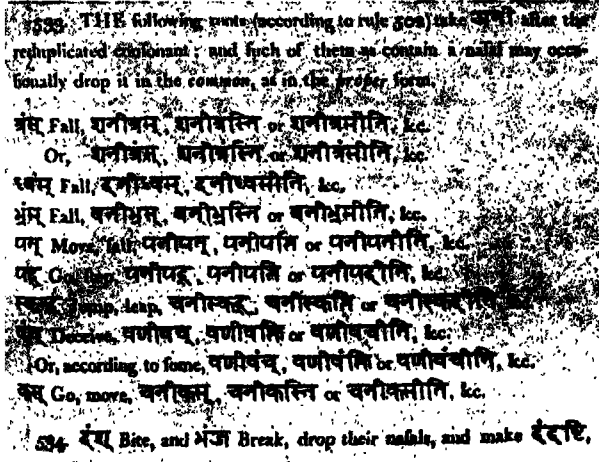 533. THE following roots (according to rule 502) take अनी after the
reduplicated consonant; and ſuch of them as contain a naſal may occa-
ſionally drop it in the common, as in the proper form.
Fall, or &c.
Or, or &c.
ध्वंस् Fall, दनीध्वस्, दनीध्वसीति, &c.
भ्रंस् Fall, बनीभ्रस्, बनीभ्रस्ति or बनीभ्रसीति, &c.
पत् Move, fall, पनीपत्, पनीपत्ति or पनीपतीति, &c.
पद् पनीपद्, पनीपत्ति or पनीपदीति, &c.
leap, चनीस्कद्, चनीस्कत्ति or &c.
Deceive, वणीवच्, वणीवक्ति or वणीवचीति, &c.
Or, according to ſome, वणीवंच्, वणीवंक्ति or वणीवंचीति, &c.
कस् Go, move, चनीकस्, चनीकस्ति or चनीकसीति, &c.
534. दंश् Bite, and भंज Break, drop their naſals, and make दंदष्टि,